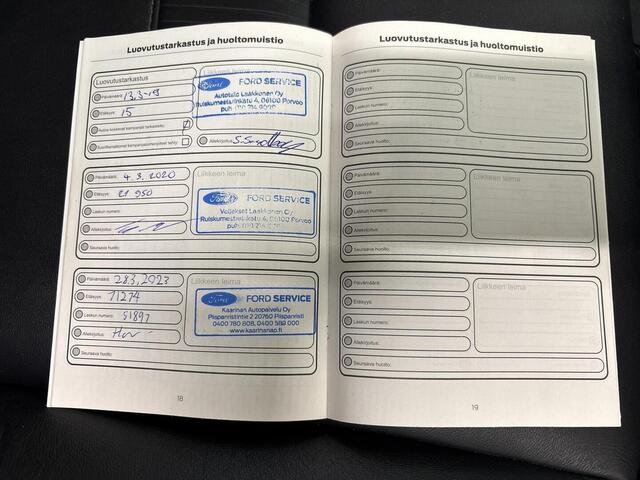 Luovutustarkastus ja huoltomuistio
Luovutustarkastus
Päivämäärä: 13.3-19
Etäisyys: 15
Liikkeen leima
Ford FORD SERVICE
Autotalo Laakkonen Oy
Ruiskumestarinkatu 4, 06100 Porvoo
puh.
Allekirjoitus:
Päivämäärä: 4.3.2020
Etäisyys: 21 950
Laskun numero:
Allekirjoitus:
Seuraava huolto:
Ford FORD SERVICE
Veljekset Laakkonen Oy
Ruiskumestarinkatu 4, 06100 Porvoo
puh.
Päivämäärä: 28.3.2023
Etäisyys: 71274
Laskun numero: 51897
Allekirjoitus:
Seuraava huolto:
Liikkeen leima
Ford FORD SERVICE
Kaarinan Autopalvelu Oy
Piispanristintie 2 20760 Piispanristi
0400 780 808, 0400 589 000
www.kaarinanap.fi
18
Luovutustarkastus ja huoltomuistio
Päivämäärä:
Etäisyys:
Laskun numero:
Allekirjoitus:
Seuraava huolto:
Liikkeen leima
Päivämäärä:
Etäisyys:
Laskun numero:
Allekirjoitus:
Seuraava huolto:
Liikkeen leima
Päivämäärä:
Etäisyys:
Laskun numero:
Allekirjoitus:
Seuraava huolto:
Liikkeen leima
19